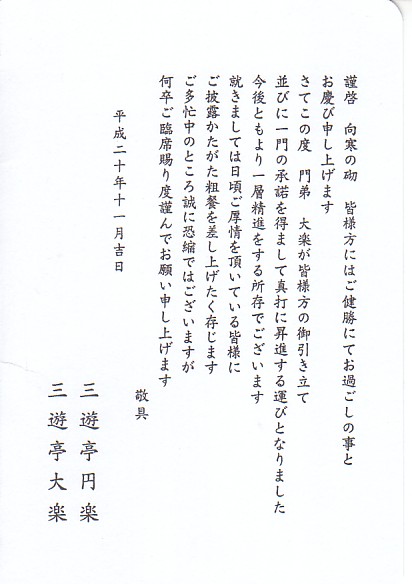 謹啓　向寒の砌　皆様方にはご健勝にてお過ごしの事と
お慶び申し上げます
さてこの度　門弟　大楽が皆様方の御引き立て
並びに一門の承諾を得まして真打に昇進する運びとなりました
今後ともより一層精進をする所存でございます
就きましては日頃ご厚情を頂いている皆様に
ご披露かたがた粗餐を差し上げたく存じます
ご多忙中のところ誠に恐縮ではございますが
何卒ご臨席賜り度謹んでお願い申し上げます
敬具
平成二十年十一月吉日
三遊亭円楽
三遊亭大楽